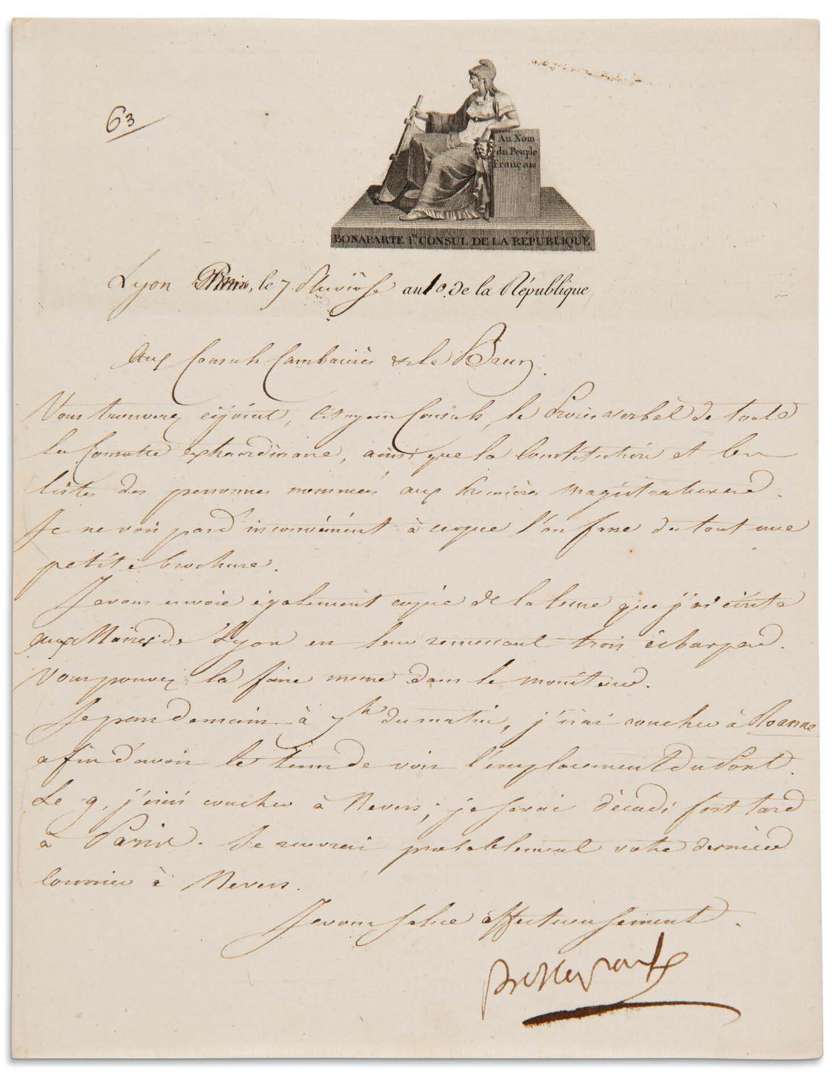 63
Au Nom
du Peuple
Français
BONAPARTE 1er CONSUL DE LA RÉPUBLIQUE
Lyon Paris, le 7 Pluviôse an 10 de la République
Aux Consuls Cambacérès et le Brun
Vous trouverez cijoint, Citoyens Consuls, le Procès verbal de toute
la Consulte extraordinaire, ainsi que la Constitution et les
listes des personnes nommées aux premières magistratures.
Je ne vois pas d'inconvénient à ce que l'on fasse du tout une
petite brochure.
Je vous envoie également copie de la lettre que j'ai écrite
aux Maires de Lyon en leur remettant trois écharpes.
Vous pouvez la faire mettre dans le moniteur.
Je pars demain à 7h du matin, j'irai coucher à Roanne
afin d'avoir le tems de voir l'emplacement du Pont.
Le 9, j'irai coucher à Nevers; je serai décadi fort tard
à Paris. Je recevrai probablement votre dernier
Courrier à Nevers.
Je vous salue affectueusement.
Bonaparte